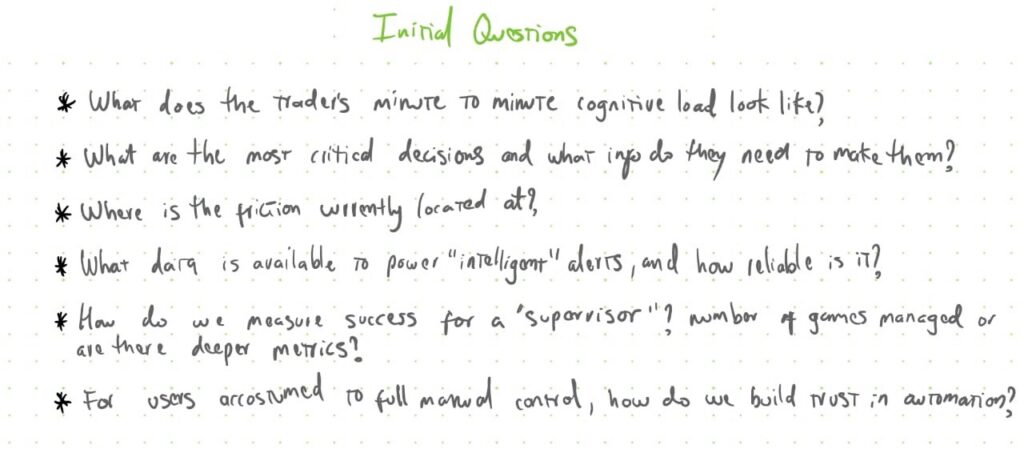 Initial Questions
* What does the trader's minute to minute cognitive load look like?
* What are the most critical decisions and what info do they need to make them?
* Where is the friction currently located at?
* What data is available to power "intelligent" alerts, and how reliable is it?
* How do we measure success for a 'supervisor"? number of games managed or
are there deeper metrics?
* For users accostumed to full manual control, how do we build trust in automation?